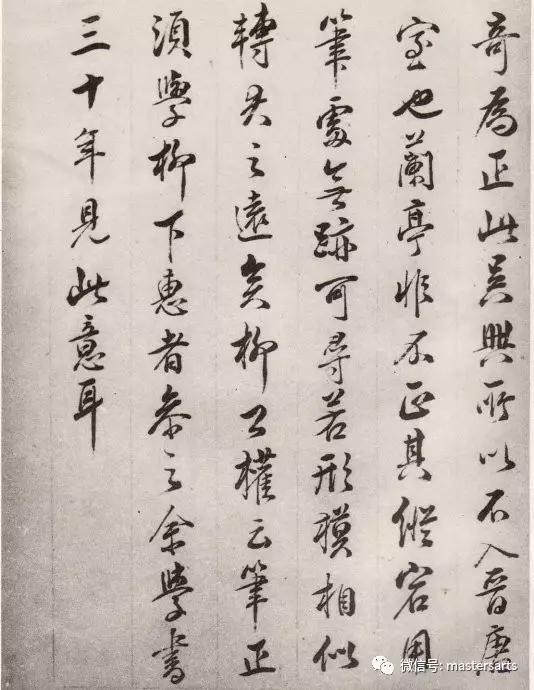 奇為正此吳興所以不入晉唐
室也蘭亭非不正其縱宕用
筆處無跡可尋若形模相似
轉去之遠矣柳公權云筆正
須學柳下惠者參之余學書
三十年見此意耳
微信号: mastersarts